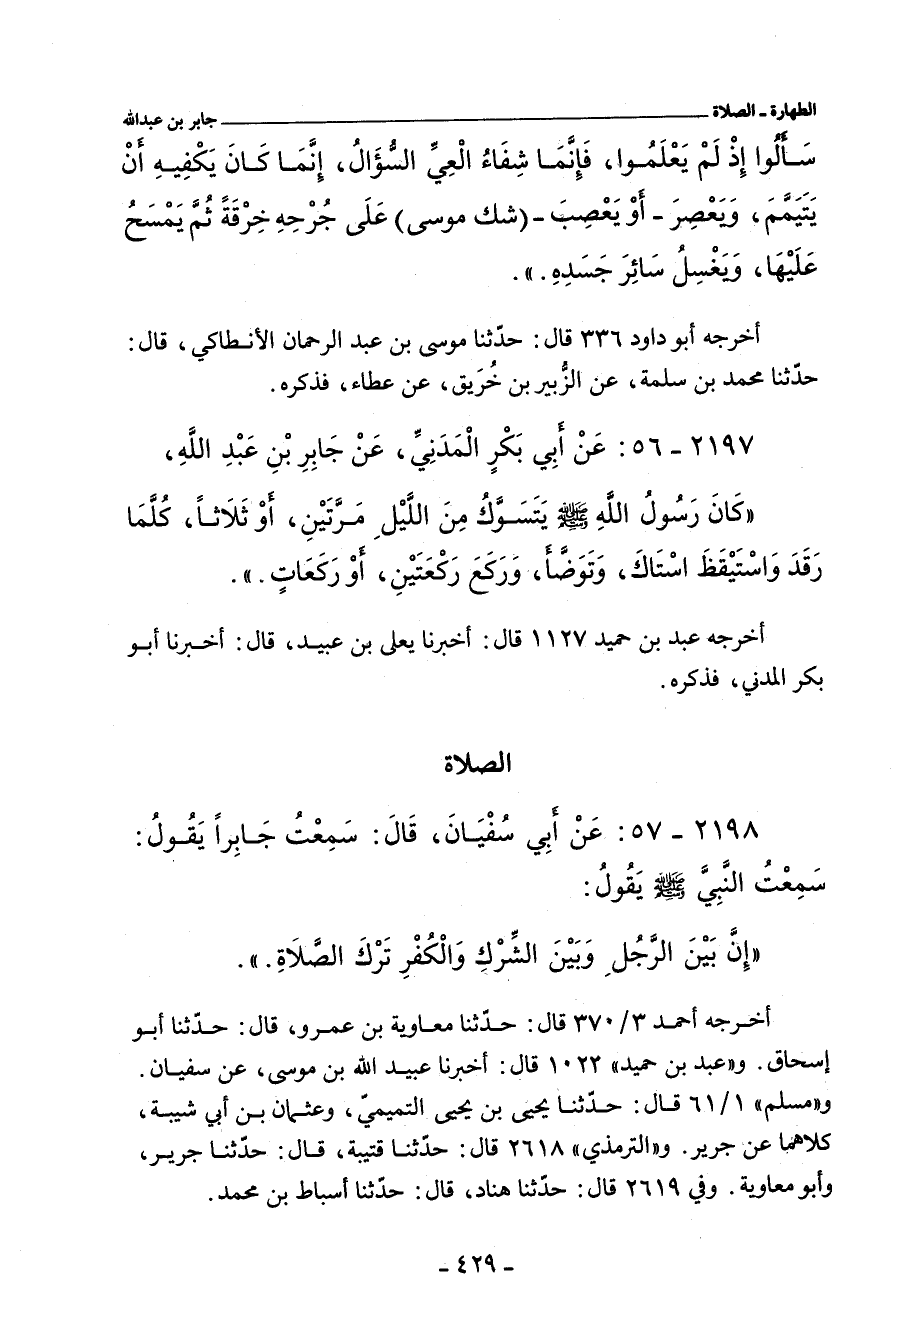 الطهارة ـ الصلاة جابر بن عبدالله
سَأَلُوا إِذْ لَمْ يَعْلَمُوا، فَإِنَّمَا شِفَاءُ الْعِيِّ السُّؤَالُ، إِنَّمَا كَانَ يَكْفِيهِ أَنْ
يَتَيَمَّمَ، وَيَعْصِرَ ـ أَوْ يَعْصِبَ ـ (شك موسى) عَلَى جُرْحِهِ خِرْقَةً ثُمَّ يَمْسَحُ
عَلَيْهَا، وَيَغْسِلُ سَائِرَ جَسَدِهِ.».
أخرجه أبو داود ٣٣٦ قال: حدّثنا موسى بن عبد الرحمان الأنطاكي، قال:
حدّثنا محمد بن سلمة، عن الزُّبير بن خُرَيق، عن عطاء، فذكره.
٢١٩٧ ـ ٥٦: عَنْ أَبِي بَكْرٍ الْمَدَنِيِّ، عَنْ جَابِرِ بْنِ عَبْدِ اللَّهِ،
«كَانَ رَسُولُ اللَّهِ ﷺ يَتَسَوَّكُ مِنَ اللَّيْلِ مَرَّتَيْنِ، أَوْ ثَلَاثاً، كُلَّمَا
رَقَدَ وَاسْتَيْقَظَ اسْتَاكَ، وَتَوَضَّأَ، وَرَكَعَ رَكْعَتَيْنِ، أَوْ رَكَعَاتٍ.».
أخرجه عبد بن حميد ١١٢٧ قال: أخبرنا يعلى بن عبيد، قال: أخبرنا أبو
بكر المدني، فذكره.
الصلاة
٢١٩٨ ـ ٥٧: عَنْ أَبِي سُفْيَانَ، قَالَ: سَمِعْتُ جَابِراً يَقُولُ:
سَمِعْتُ النَّبِيَّ ﷺ يَقُولُ:
«إِنَّ بَيْنَ الرَّجُلِ وَبَيْنَ الشِّرْكِ وَالْكُفْرِ تَرْكَ الصَّلَاةِ.».
أخرجه أحمد ٣/ ٣٧٠ قال: حدّثنا معاوية بن عمرو، قال: حدّثنا أبو
إسحاق. و«عبد بن حميد» ١٠٢٢ قال: أخبرنا عبيد الله بن موسى، عن سفيان.
و«مسلم» ١/ ٦١ قال: حدّثنا يحيى بن يحيى التميميّ، وعثمان بن أبي شيبة،
كلاهما عن جرير. و«الترمذي» ٢٦١٨ قال: حدّثنا قتيبة، قال: حدّثنا جرير،
وأبو معاوية. وفي ٢٦١٩ قال: حدّثنا هناد، قال: حدّثنا أسباط بن محمد.
ـ ٤٢٩ ـ